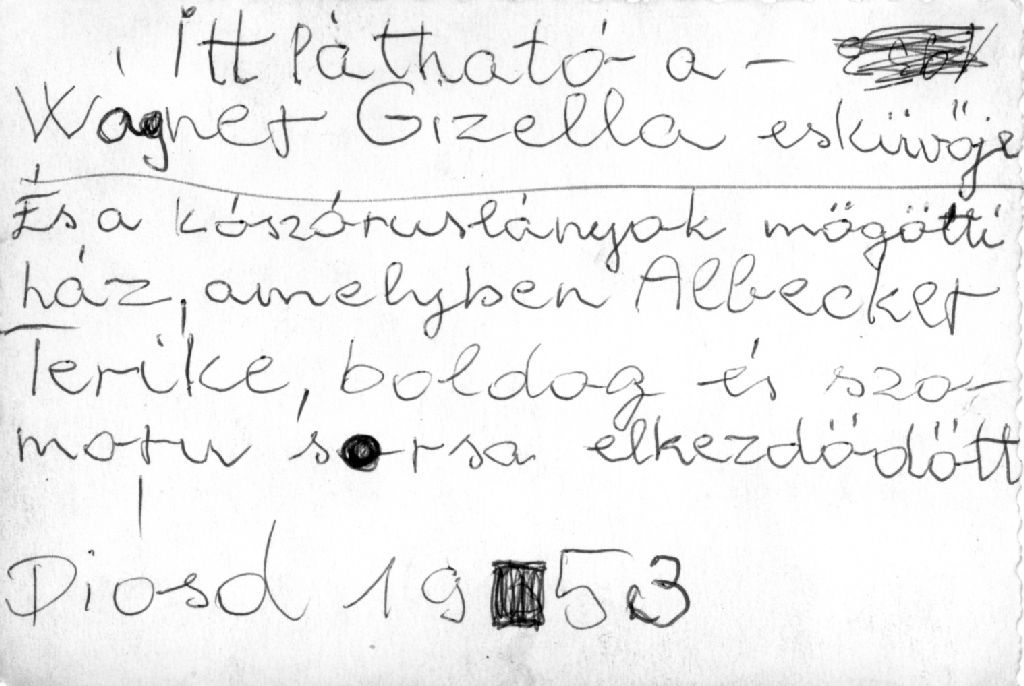 Itt látható a -
Wagner Gizella esküvője
És a kószóruslányok mögötti
ház, amelyben Albecker
Terike, boldog és szo-
moru sorsa elkezdődött
Diósd 1953